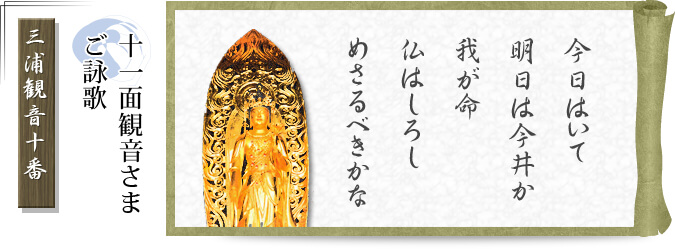 三浦観音十番
十一面観音さま
ご詠歌
今日はいて
明日は今井か
我が命
仏はしろし
めさるべきかな